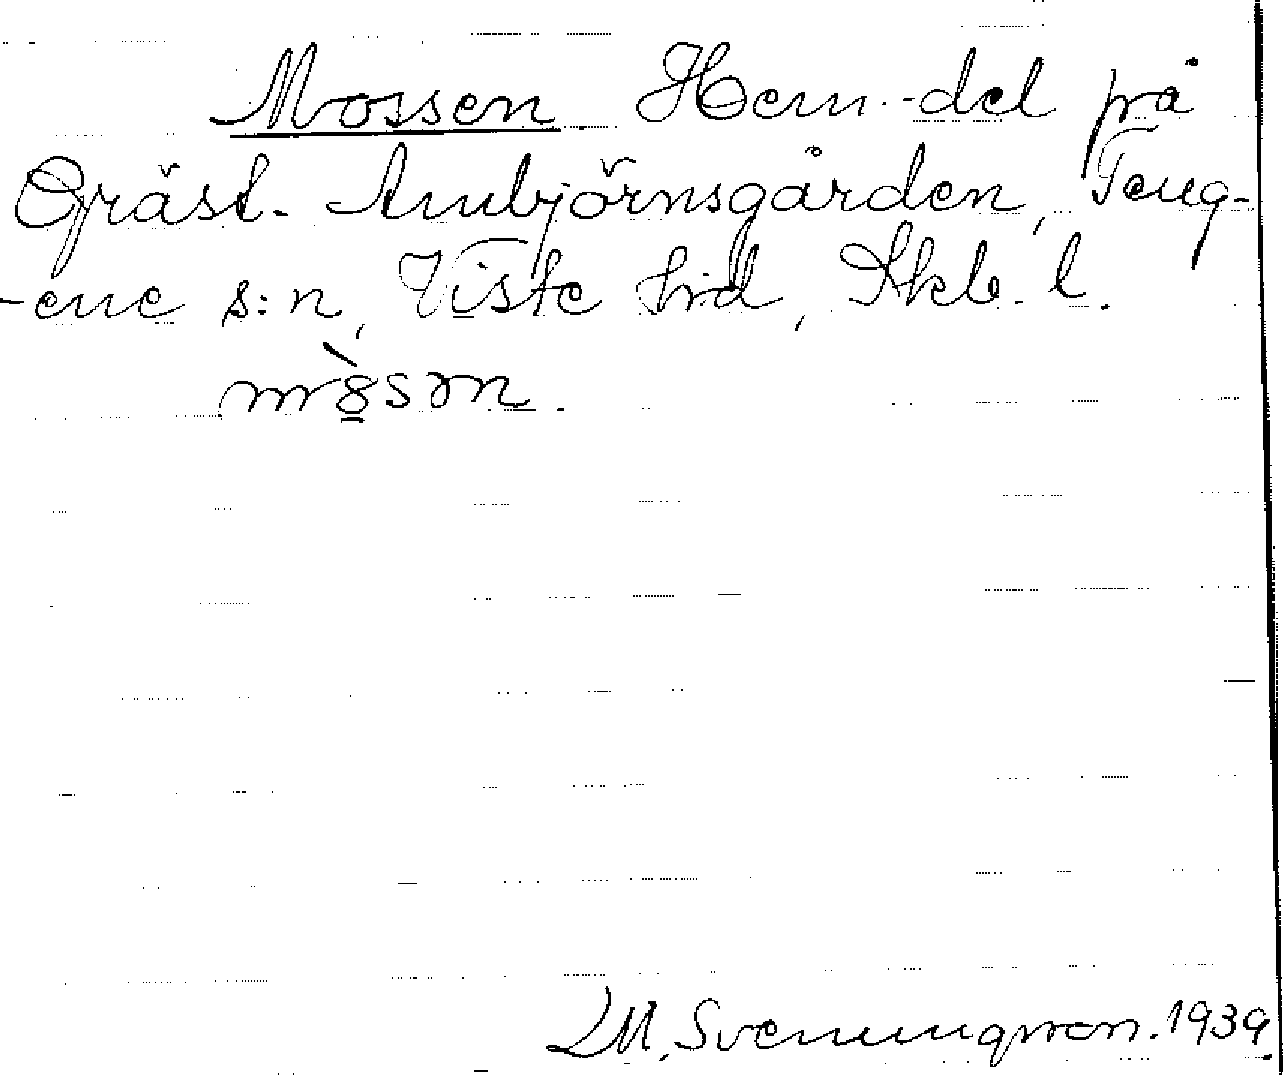 Mossen Hem.-del på
Gräst. Ambjörnsgården, Teng-
-ene s:n, Viste hrd, Skb. l.
mò̱̱sən.
LM. Svenungsson. 1939.